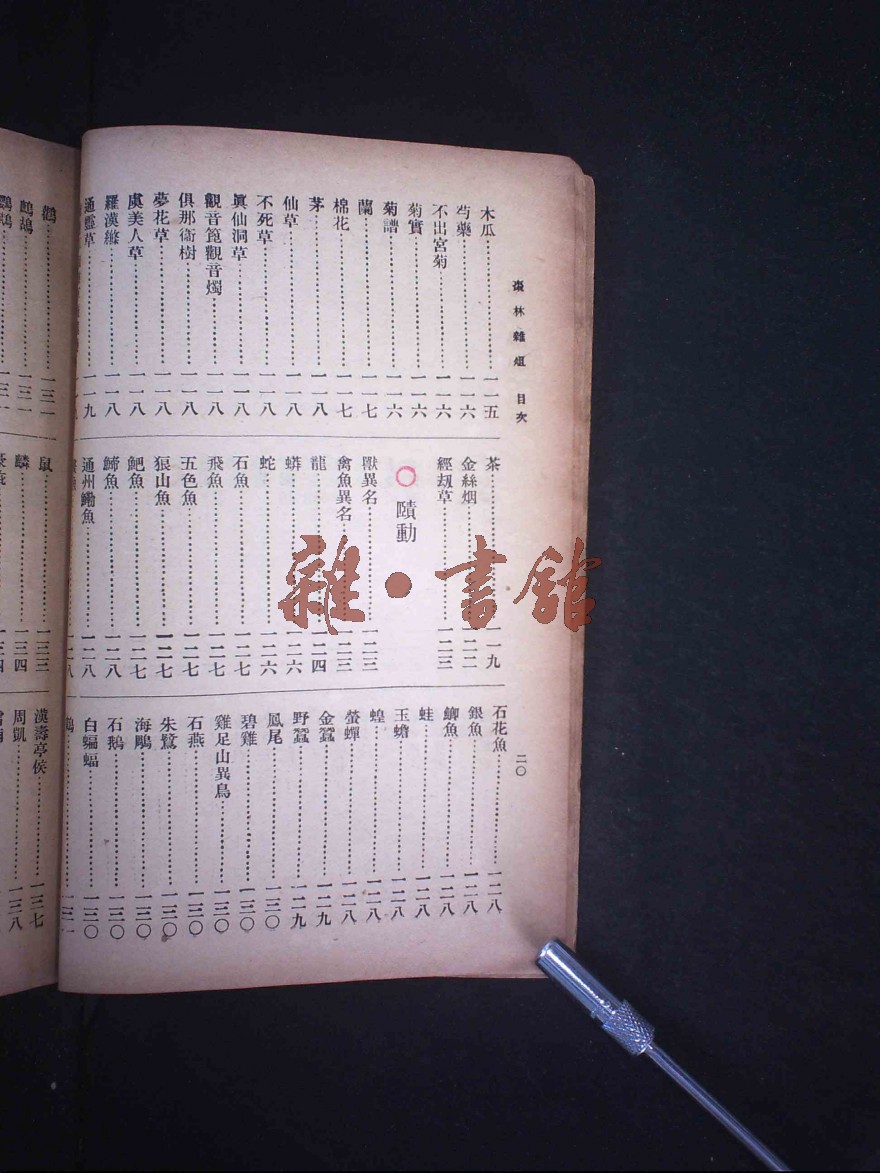 棗林雜俎 目次
二〇
木瓜……一一五
芍藥……一一六
不出宮菊……一一六
菊實……一一六
菊譜……一一六
蘭……一一七
棉花……一一七
茅……一一八
仙草……一一八
不死草……一一八
眞仙洞草……一一八
觀音箆觀音燭……一一八
俱那衞樹……一一八
夢花草……一一八
虞美人草……一一八
羅漢縧……一一八
通靈草……一一九
茶……一一九
金絲烟……一二二
經刼草……一二三
〇 賾動
獸異名……一二三
禽魚異名……一二三
龍……一二四
蟒……一二六
蛇……一二六
石魚……一二七
飛魚……一二七
五色魚……一二七
狼山魚……一二七
䰾魚……一二七
鯑魚……一二八
通州鰳魚……一二八
石花魚……一二八
銀魚……一二八
鯽魚……一二八
蛙……一二八
玉蟾……一二八
蝗……一二八
螢蟬……一二八
金蠶……一二九
野蠶……一二九
鳳尾……一三〇
碧雞……一三〇
雞足山異鳥……一三〇
石燕……一三〇
朱鷺……一三〇
海鵰……一三〇
石鵝……一三〇
白蝙蝠……一三〇
鶴……一三一
鷓鴣……一三一
鼠……一三三
麟……一三四
漢壽亭侯……一三七
周凱……一三八
雜·書館